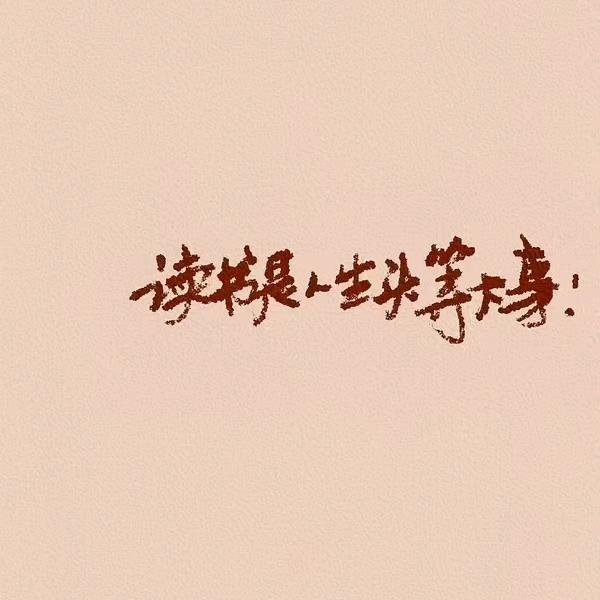 读书是人生头等大事!